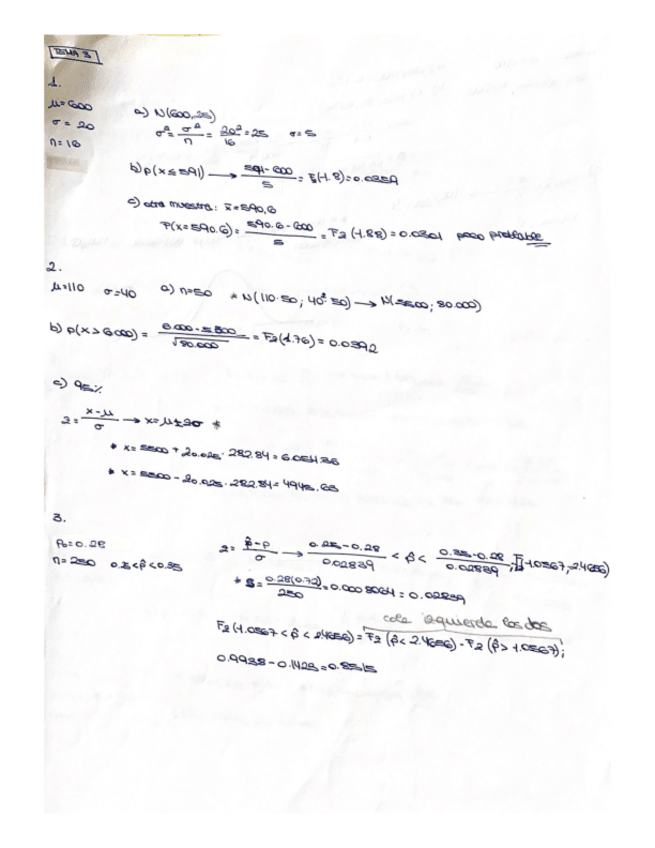 TEMA 3
1.
μ=600
σ = 20
n=16
a) N(600,25)
σ² = σ²/n = 20²/16 = 25 σ=5
b) p(x≤591) → 591-600/5 = F(-1.8)=0.0359
c) otra muestra: x̄=590,6
P(x=590.6)= 590.6-600/5 = Fz(-1.88)=0.0301 poco probable
2.
μ=110 σ=40 a) n=50 * N(110·50; 40²·50) → N(5500; 80.000)
b) p(x>6000) = 6.000-5500/√80.000 = Fz(1.76) = 0.0392
c) 95%
z= x-μ/σ → x=μ±zσ *
* x= 5500 + z0.025 · 282.84 = 6.054.36
* x= 5500 - z0.025 · 282.84 = 4945.63
3.
p₀=0.28
n=250 0.25<p̂<0.35
z= p̂-p/σ → 0.25-0.28/0.02839 < p̂ < 0.35-0.28/0.02839; [-1.0567, 2.4656)
* S = 0.28(0.72)/250 = 0.0008064 = 0.02839
cola izquierda los dos
Fz(-1.0567 < p̂ < 2.4656) = Fz(p̂<2.4656) - Fz(p̂>-1.0567);
0.9938-0.1423=0.8515